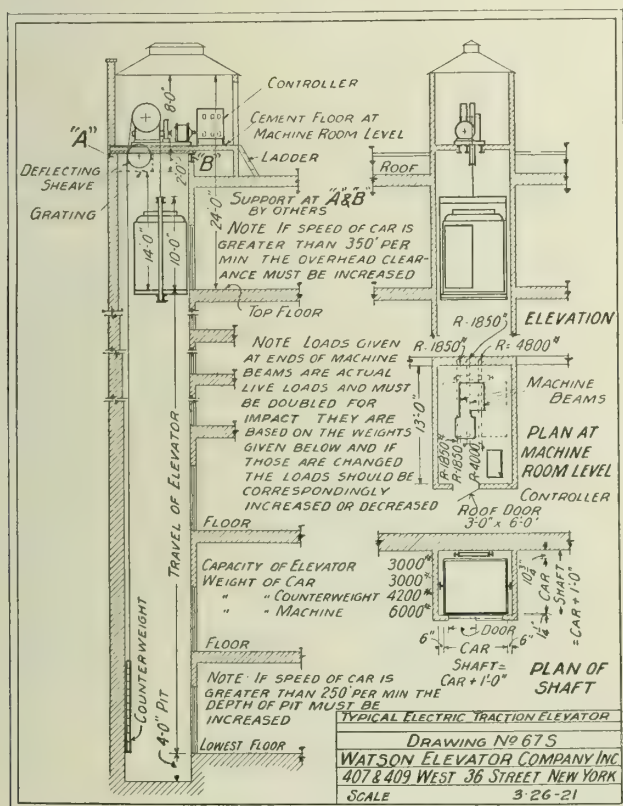 CONTROLLER
8'-0"
"A"
CEMENT FLOOR AT
MACHINE ROOM LEVEL
DEFLECTING
SHEAVE
2'0"
"B"
LADDER
GRATING
24'-0"
SUPPORT AT "A"&"B"
BY OTHERS
14'-0"
10'-0"
NOTE IF SPEED OF CAR IS
GREATER THAN 350' PER
MIN THE OVERHEAD CLEAR-
ANCE MUST BE INCREASED
TOP FLOOR
NOTE LOADS GIVEN
AT ENDS OF MACHINE
BEAMS ARE ACTUAL
LIVE LOADS AND MUST
BE DOUBLED FOR
IMPACT THEY ARE
BASED ON THE WEIGHTS
GIVEN BELOW AND IF
THOSE ARE CHANGED
THE LOADS SHOULD BE
CORRESPONDINGLY
INCREASED OR DECREASED
TRAVEL OF ELEVATOR
FLOOR
CAPACITY OF ELEVATOR 3000#
WEIGHT OF CAR 3000#
" " COUNTERWEIGHT 4200#
" " MACHINE 6000#
FLOOR
NOTE: IF SPEED OF CAR IS
GREATER THAN 250' PER MIN THE
DEPTH OF PIT MUST BE
INCREASED
COUNTERWEIGHT
4'-0" PIT
LOWEST FLOOR
ROOF
ELEVATION
R-1850#
R-1850#
R=4800#
MACHINE
BEAMS
13'-0"
PLAN AT
MACHINE
ROOM LEVEL
R-1850#
R-1850#
R-4000#
CONTROLLER
ROOF DOOR
3'-0" x 6'-0"
10 3/4"
CAR
SHAFT
=CAR+1'-0"
DOOR
6"
CAR
6"
SHAFT=
CAR+1'-0"
PLAN OF
SHAFT
TYPICAL ELECTRIC TRACTION ELEVATOR
DRAWING No 67S
WATSON ELEVATOR COMPANY INC
407 & 409 WEST 36 STREET NEW YORK
SCALE 3-26-21